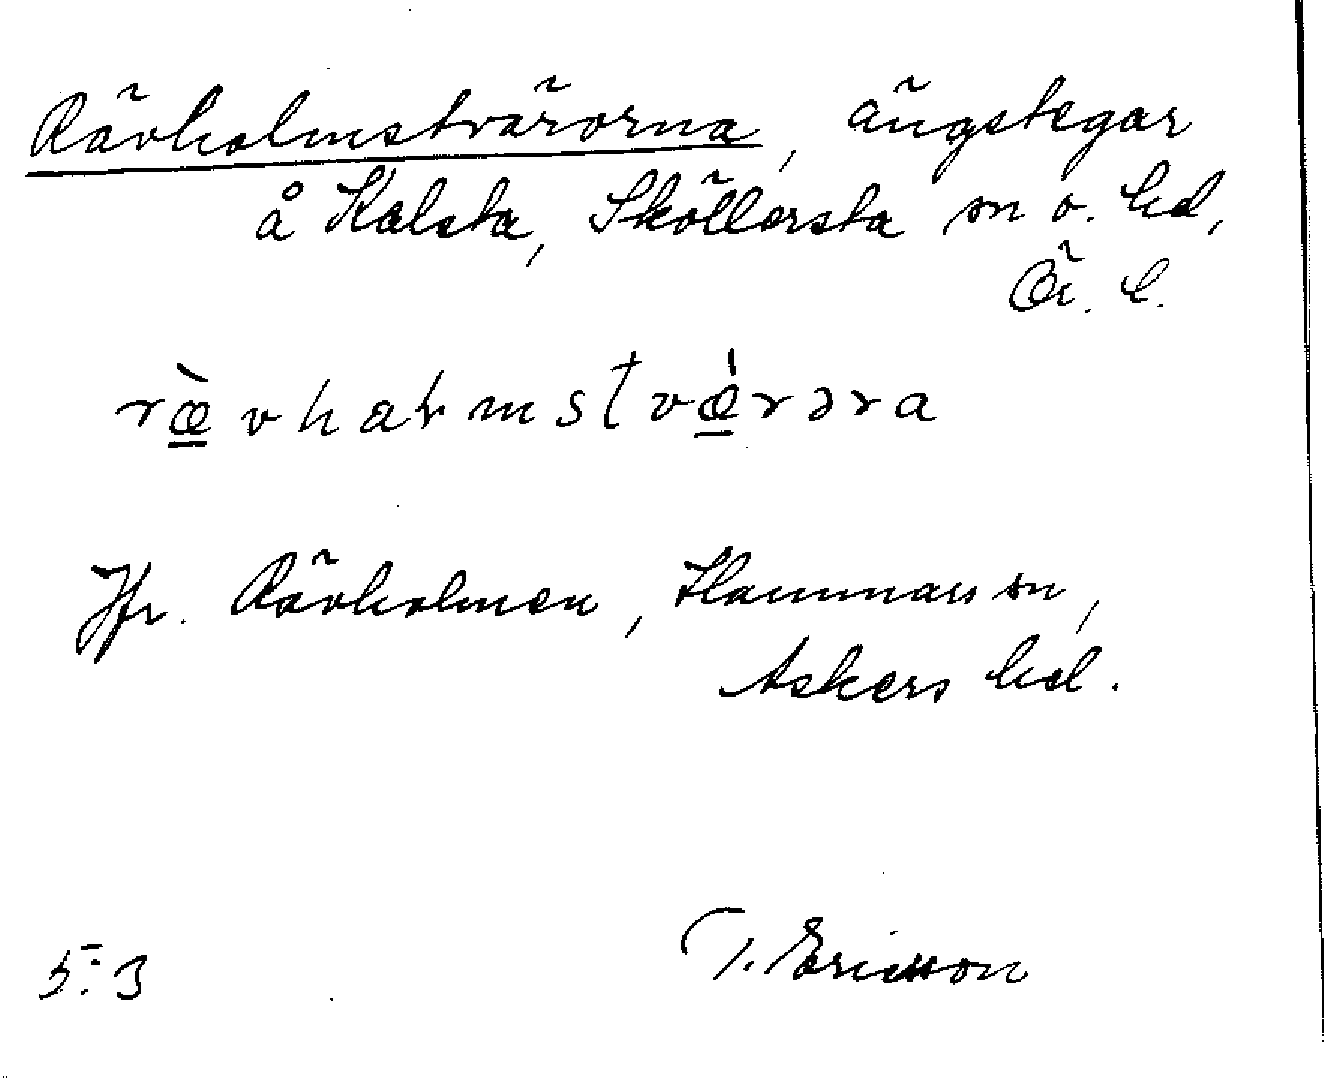 Rävholmstvärorna, ängstegar
å Kalsta, Sköllersta sn o. hd,
Ör. l.
ræ̀vhaɫmstvæ̍rəra
Jfr. Rävholmen, Hammars sn,
Askers hd.
5:3 T. Ericsson